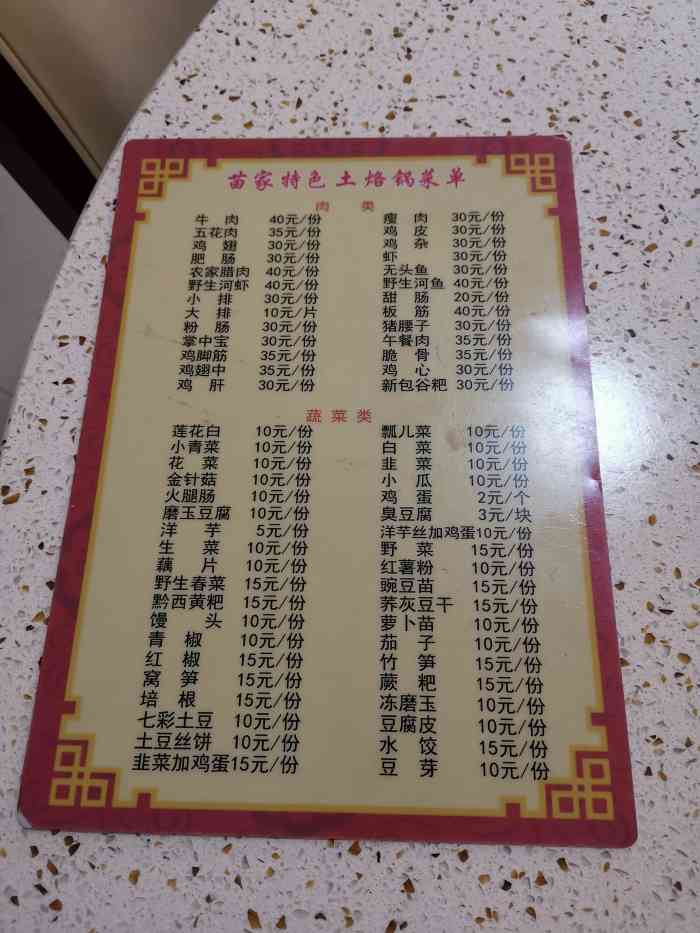 苗家特色土烙锅菜单
肉 类
牛 肉 40元/份 瘦 肉 30元/份
五花肉 35元/份 鸡 皮 30元/份
鸡 翅 30元/份 鸡 杂 30元/份
肥 肠 30元/份 虾 30元/份
农家腊肉 40元/份 无头鱼 30元/份
野生河虾 40元/份 野生河鱼 40元/份
小 排 30元/份 甜 肠 20元/份
大 排 10元/片 板 筋 40元/份
粉 肠 30元/份 猪腰子 30元/份
掌中宝 30元/份 午餐肉 35元/份
鸡脚筋 35元/份 脆 骨 35元/份
鸡翅中 35元/份 鸡 心 30元/份
鸡 肝 30元/份 新包谷粑 30元/份
蔬菜类
莲花白 10元/份 瓢儿菜 10元/份
小青菜 10元/份 白 菜 10元/份
花 菜 10元/份 韭 菜 10元/份
金针菇 10元/份 小 瓜 10元/份
火腿肠 10元/份 鸡 蛋 2元/个
磨玉豆腐 10元/份 臭豆腐 3元/块
洋 芋 5元/份 洋芋丝加鸡蛋10元/份
生 菜 10元/份 野 菜 15元/份
藕 片 10元/份 红薯粉 10元/份
野生春菜 15元/份 豌豆苗 15元/份
黔西黄粑 15元/份 荞灰豆干 15元/份
馒 头 10元/份 萝卜苗 10元/份
青 椒 10元/份 茄 子 10元/份
红 椒 15元/份 竹 笋 15元/份
窝 笋 15元/份 蕨 粑 15元/份
培 根 15元/份 冻磨玉 10元/份
七彩土豆 10元/份 豆腐皮 10元/份
土豆丝饼 10元/份 水 饺 15元/份
韭菜加鸡蛋15元/份 豆 芽 10元/份